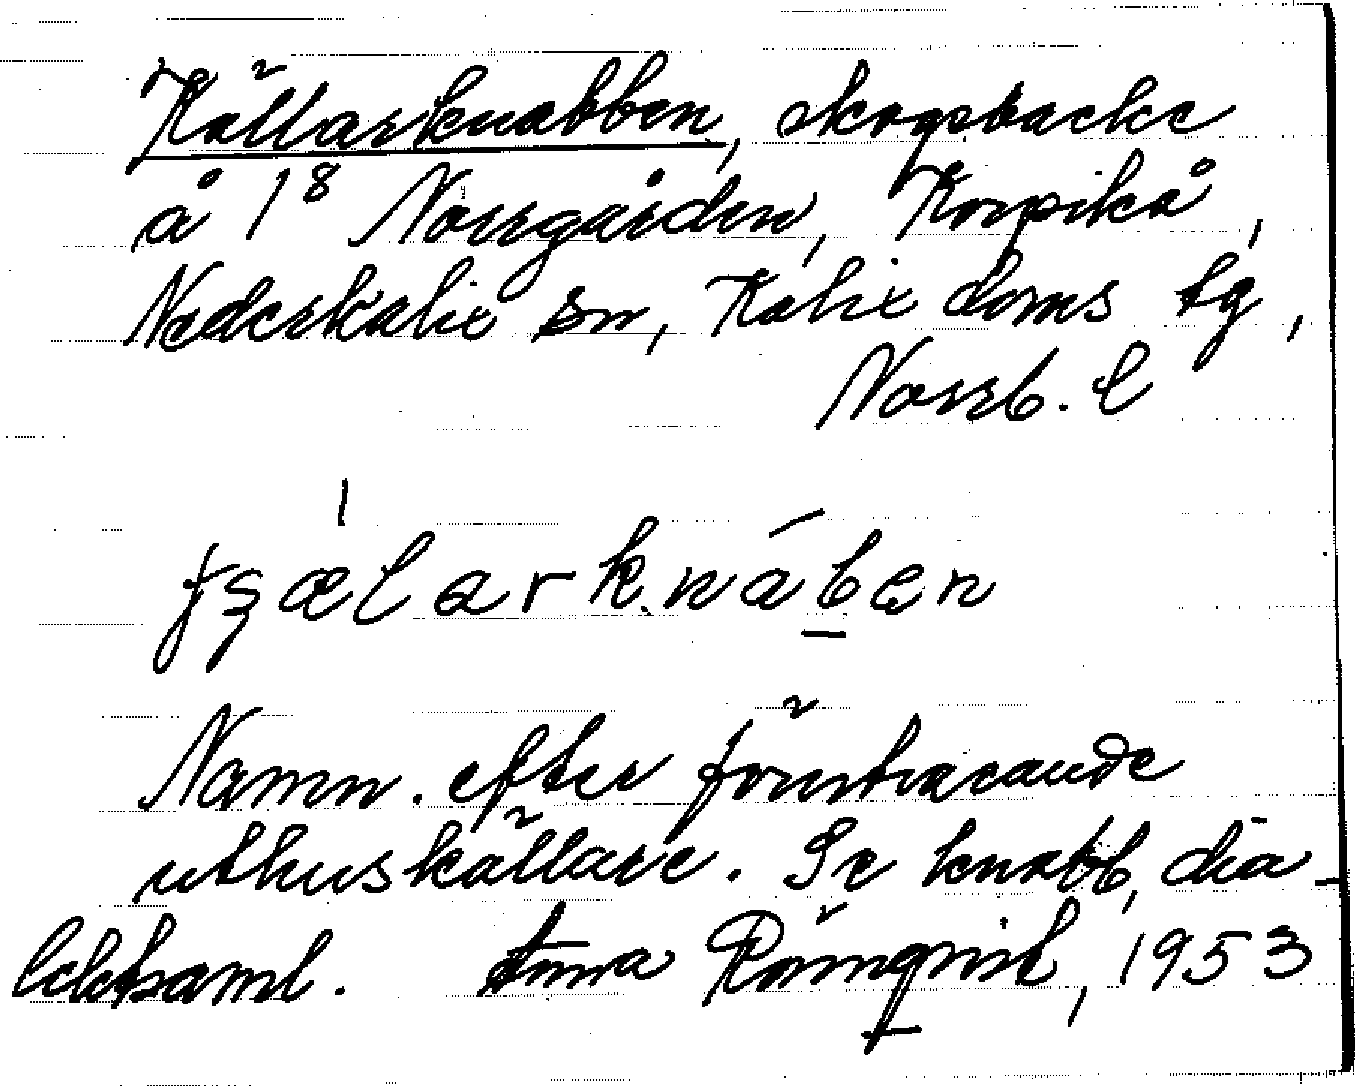 Källarknabben, skogsbacke
å 1⁸ Norrgården, Korpikå,
Nederkalix sn, Kalix doms tg,
Norrb. l
Namn. efter försvarande
uthuskällare. Se knabb, dia-
lektsaml. Anna Rönnqvist, 1953